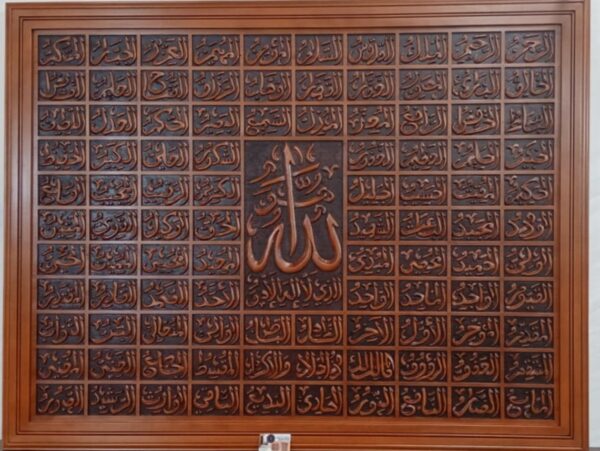 الرحمن الرحيم الملك القدوس السلام المؤمن المهيمن العزيز الجبار المتكبر
الخالق البارئ المصور الغفار القهار الوهاب الرزاق الفتاح العليم القابض
الباسط الخافض الرافع المعز المذل السميع البصير الحكم العدل اللطيف
الخبير الحليم العظيم الغفور الشكور العلي الكبير الحفيظ
الله
الودود المجيد الباعث الشهيد الحق الوكيل القوي المتين
الولي الحميد المحصي المبدئ المعيد المحيي المميت الحي
القيوم الواجد الماجد الواحد الأحد الصمد القادر المقتدر
المقدم المؤخر الأول الآخر الظاهر الباطن الوالي المتعالي البر التواب
المنتقم العفو الرؤوف مالك الملك ذو الجلال والإكرام المقسط الجامع الغني المغني
المانع الضار النافع النور الهادي البديع الباقي الوارث الرشيد الصبور